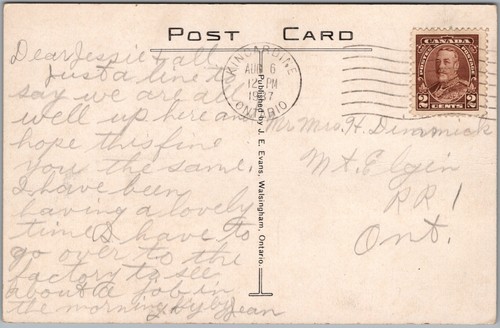 POST CARD
Dear Jessie & all
Just a line to
say we are all
well up here and
hope this fine
you the same.
I have been
having a lovely
time, I have to
go over to the
factory to see
about a job in
the morning. by by Jean
KINCARDINE
AUG 6
12 PM
1937
ONTARIO
Published by J. E. Evans, Walsingham, Ontario.
CANADA
POSTES POSTAGE
2 CENTS 2
Mr Mrs. H. Dimmick
Mt. Elgin
RR 1
Ont.